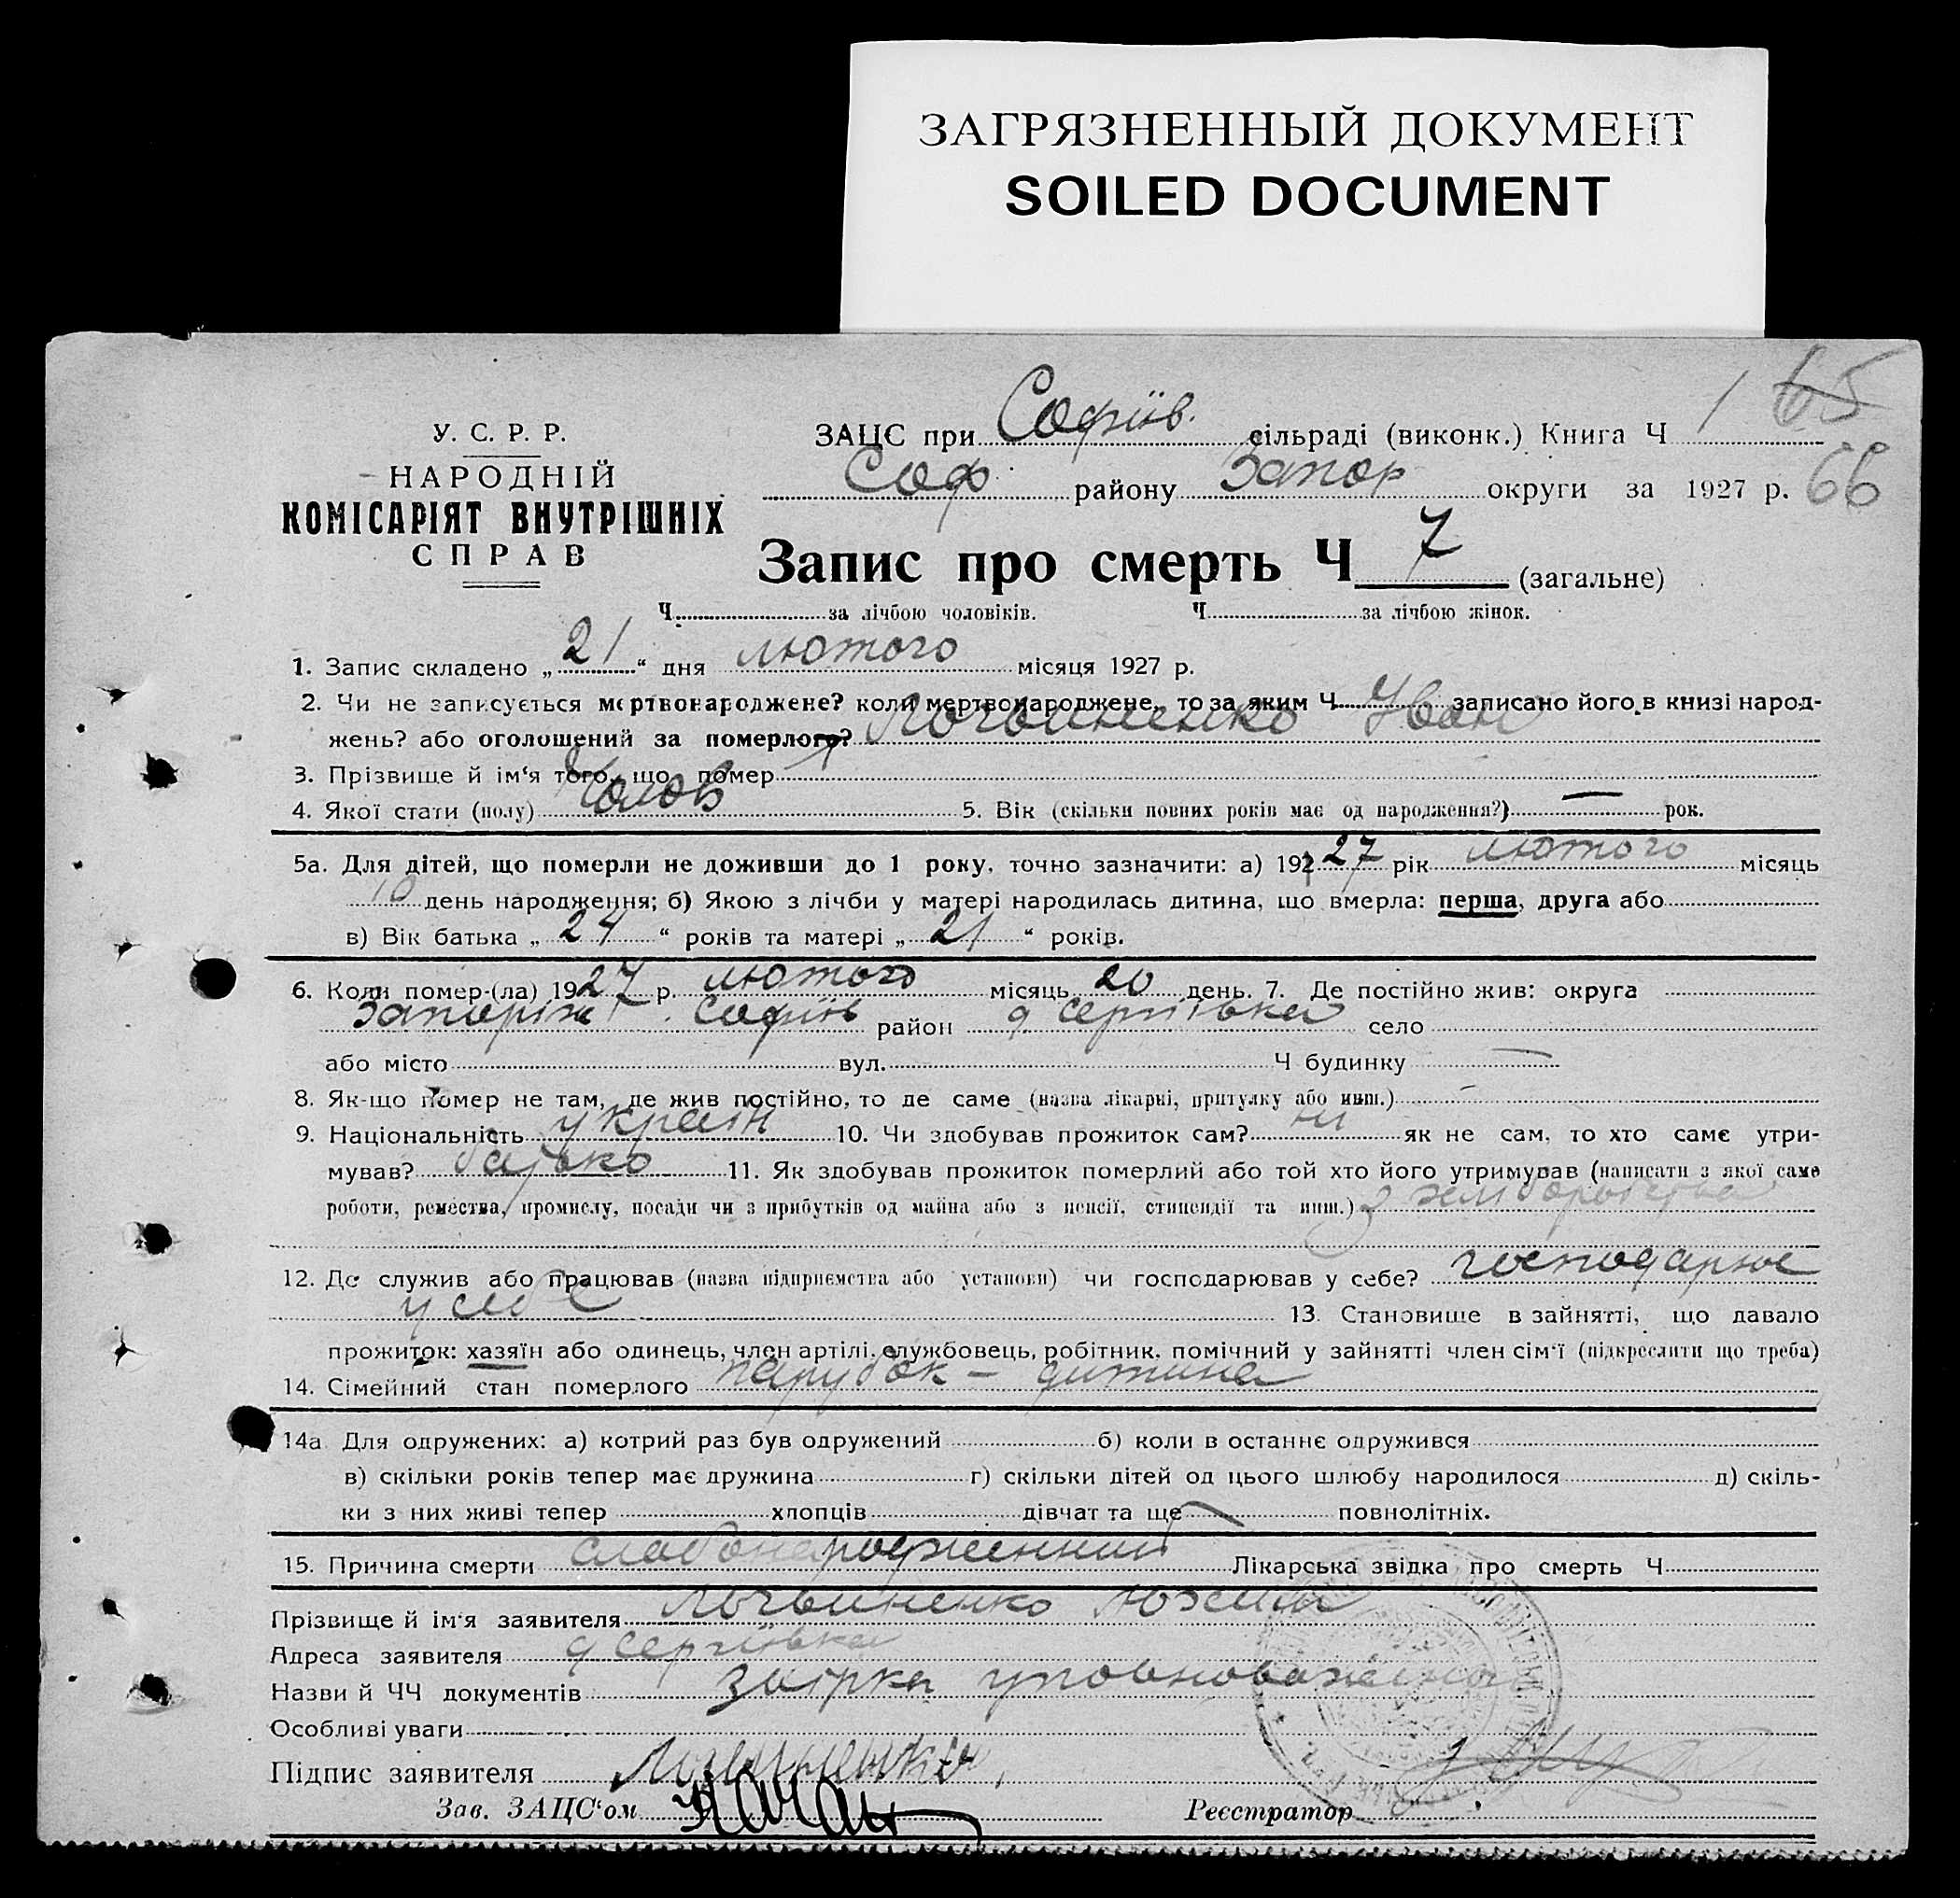 ЗАГРЯЗНЕННЫЙ ДОКУМЕНТ
SOILED DOCUMENT
У. С. Р. Р.
НАРОДНІЙ
КОМІСАРІЯТ ВНУТРІШНІХ
СПРАВ
ЗАЦС при Софіїв. сільраді (виконк.) Книга Ч 1 65
Соф. району Запор округи за 1927 р. 66
Запис про смерть Ч 7 (загальне)
Ч за лічбою чоловіків. Ч за лічбою жінок.
1. Запис складено „ 21 “ дня лютого місяця 1927 р.
2. Чи не записується мертвонароджене? коли мертвонароджене, то за яким Ч записано його в книзі народ-
жень? або оголошений за померлого? Логвиненко Іван
3. Прізвище й ім‘я того, що помер
4. Якої стати (полу) Чолов 5. Вік (скільки повних років має од народження?) — рок.
5а. Для дітей, що померли не доживши до 1 року, точно зазначити: а) 192 27 рік лютого місяць
10 день народження; б) Якою з лічби у матері народилась дитина, що вмерла: перша, друга або
в) Вік батька „ 24 “ років та матері „ 21 “ років.
6. Коли помер-(ла) 1927 р. лютого місяць 20 день. 7. Де постійно жив: округа
Запоріж Софіїв район д Сергіївка село
або місто вул. Ч будинку —
8. Як-що помер не там, де жив постійно, то де саме (назва лікарні, притулку або инш.) —
9. Національність україн 10. Чи здобував прожиток сам? ні як не сам, то хто саме утри-
мував? батько 11. Як здобував прожиток померлий або той хто його утримував (написати з якої саме
роботи, ремества, промислу, посади чи з прибутків од майна або з пенсії, стипендії та инш.) з
12. Де служив або працював (назва підприємства або установи) чи господарював у себе? господарює
у себе 13. Становище в зайнятті, що давало
прожиток: хазяїн або одинець, член артілі, службовець, робітник, помічний у зайнятті член сім‘ї (підкреслити що треба)
14. Сімейний стан померлого парубок — дитина
14а Для одружених: а) котрий раз був одружений б) коли в останнє одружився
в) скільки років тепер має дружина г) скільки дітей од цього шлюбу народилося д) скіль-
ки з них живі тепер хлопців дівчат та ще повнолітніх.
15. Причина смерти слабонарожденний Лікарська звідка про смерть Ч
Прізвище й ім‘я заявителя Логвиненко
Адреса заявителя д Сергіївка
Назви й ЧЧ документів
Особливі уваги
Підпис заявителя
Зав. ЗАЦС‘ом Реєстратор